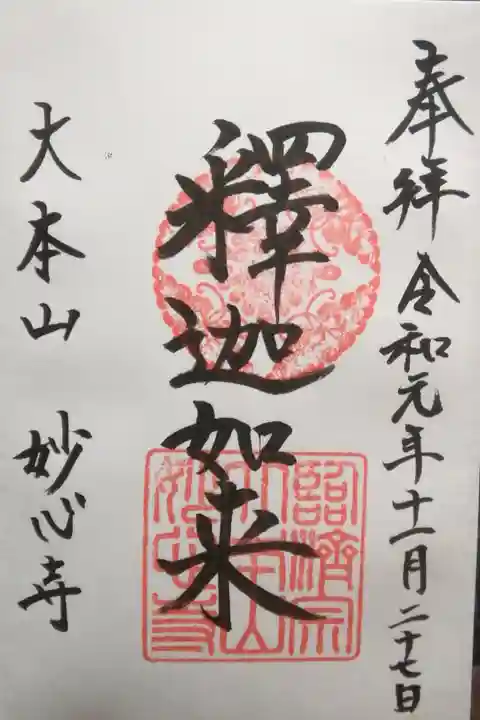 奉拝 令和元年十一月二十七日
釋迦如来
臨済宗
大本山
妙心寺
大本山 妙心寺